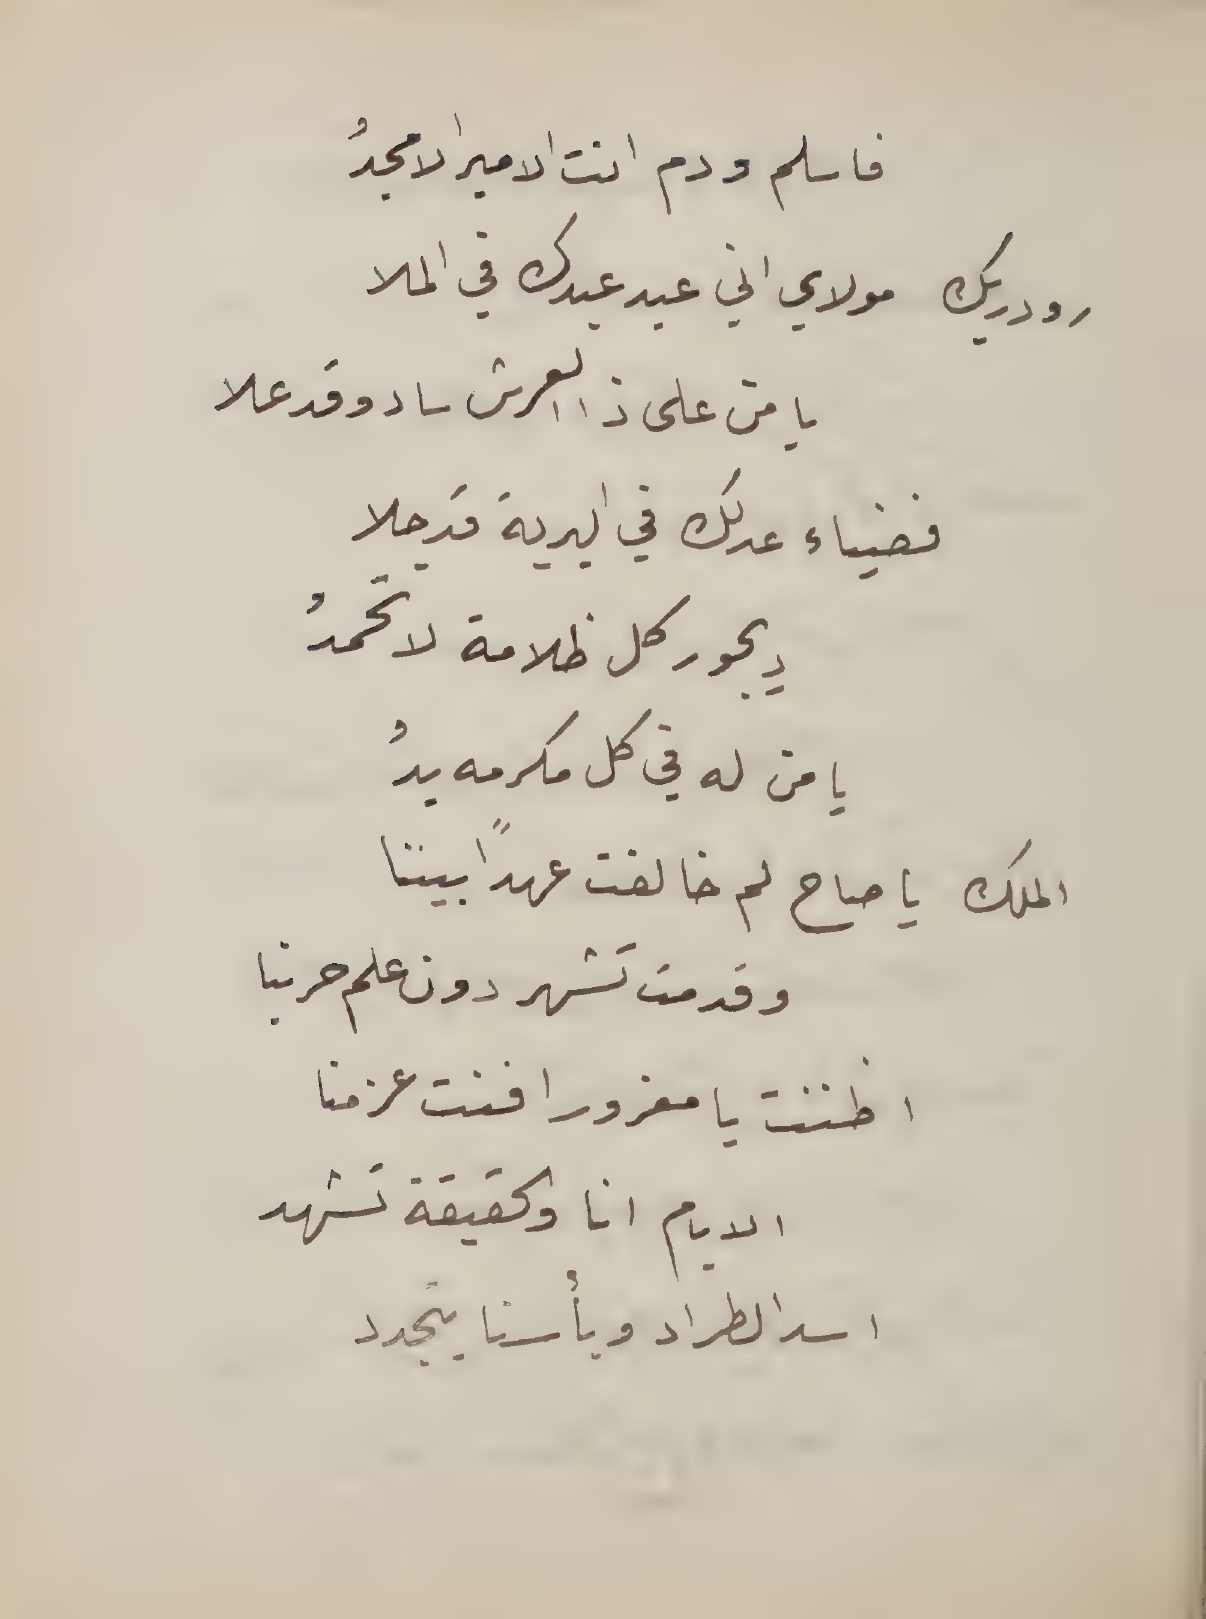 فاسلم ودم انت الامير الامجدُ
رودريك مولاي اني عبد عبدك في الملا
يا من على ذا العرش ساد وقد علا
فضياء عدلك في البرية قد جلا
ديجور كل ظلامة لا تحمدُ
يا من له في كل مكرمه يدُ
الملك يا صاح لم خالفت عهدًا بيننا
وقدمت تشهر دون علم حربنا
اظننت يا مغرور افنت عزمنا
الايام انا والحقيقة تشهد
اسد الطراد وبأسنا يتجدد